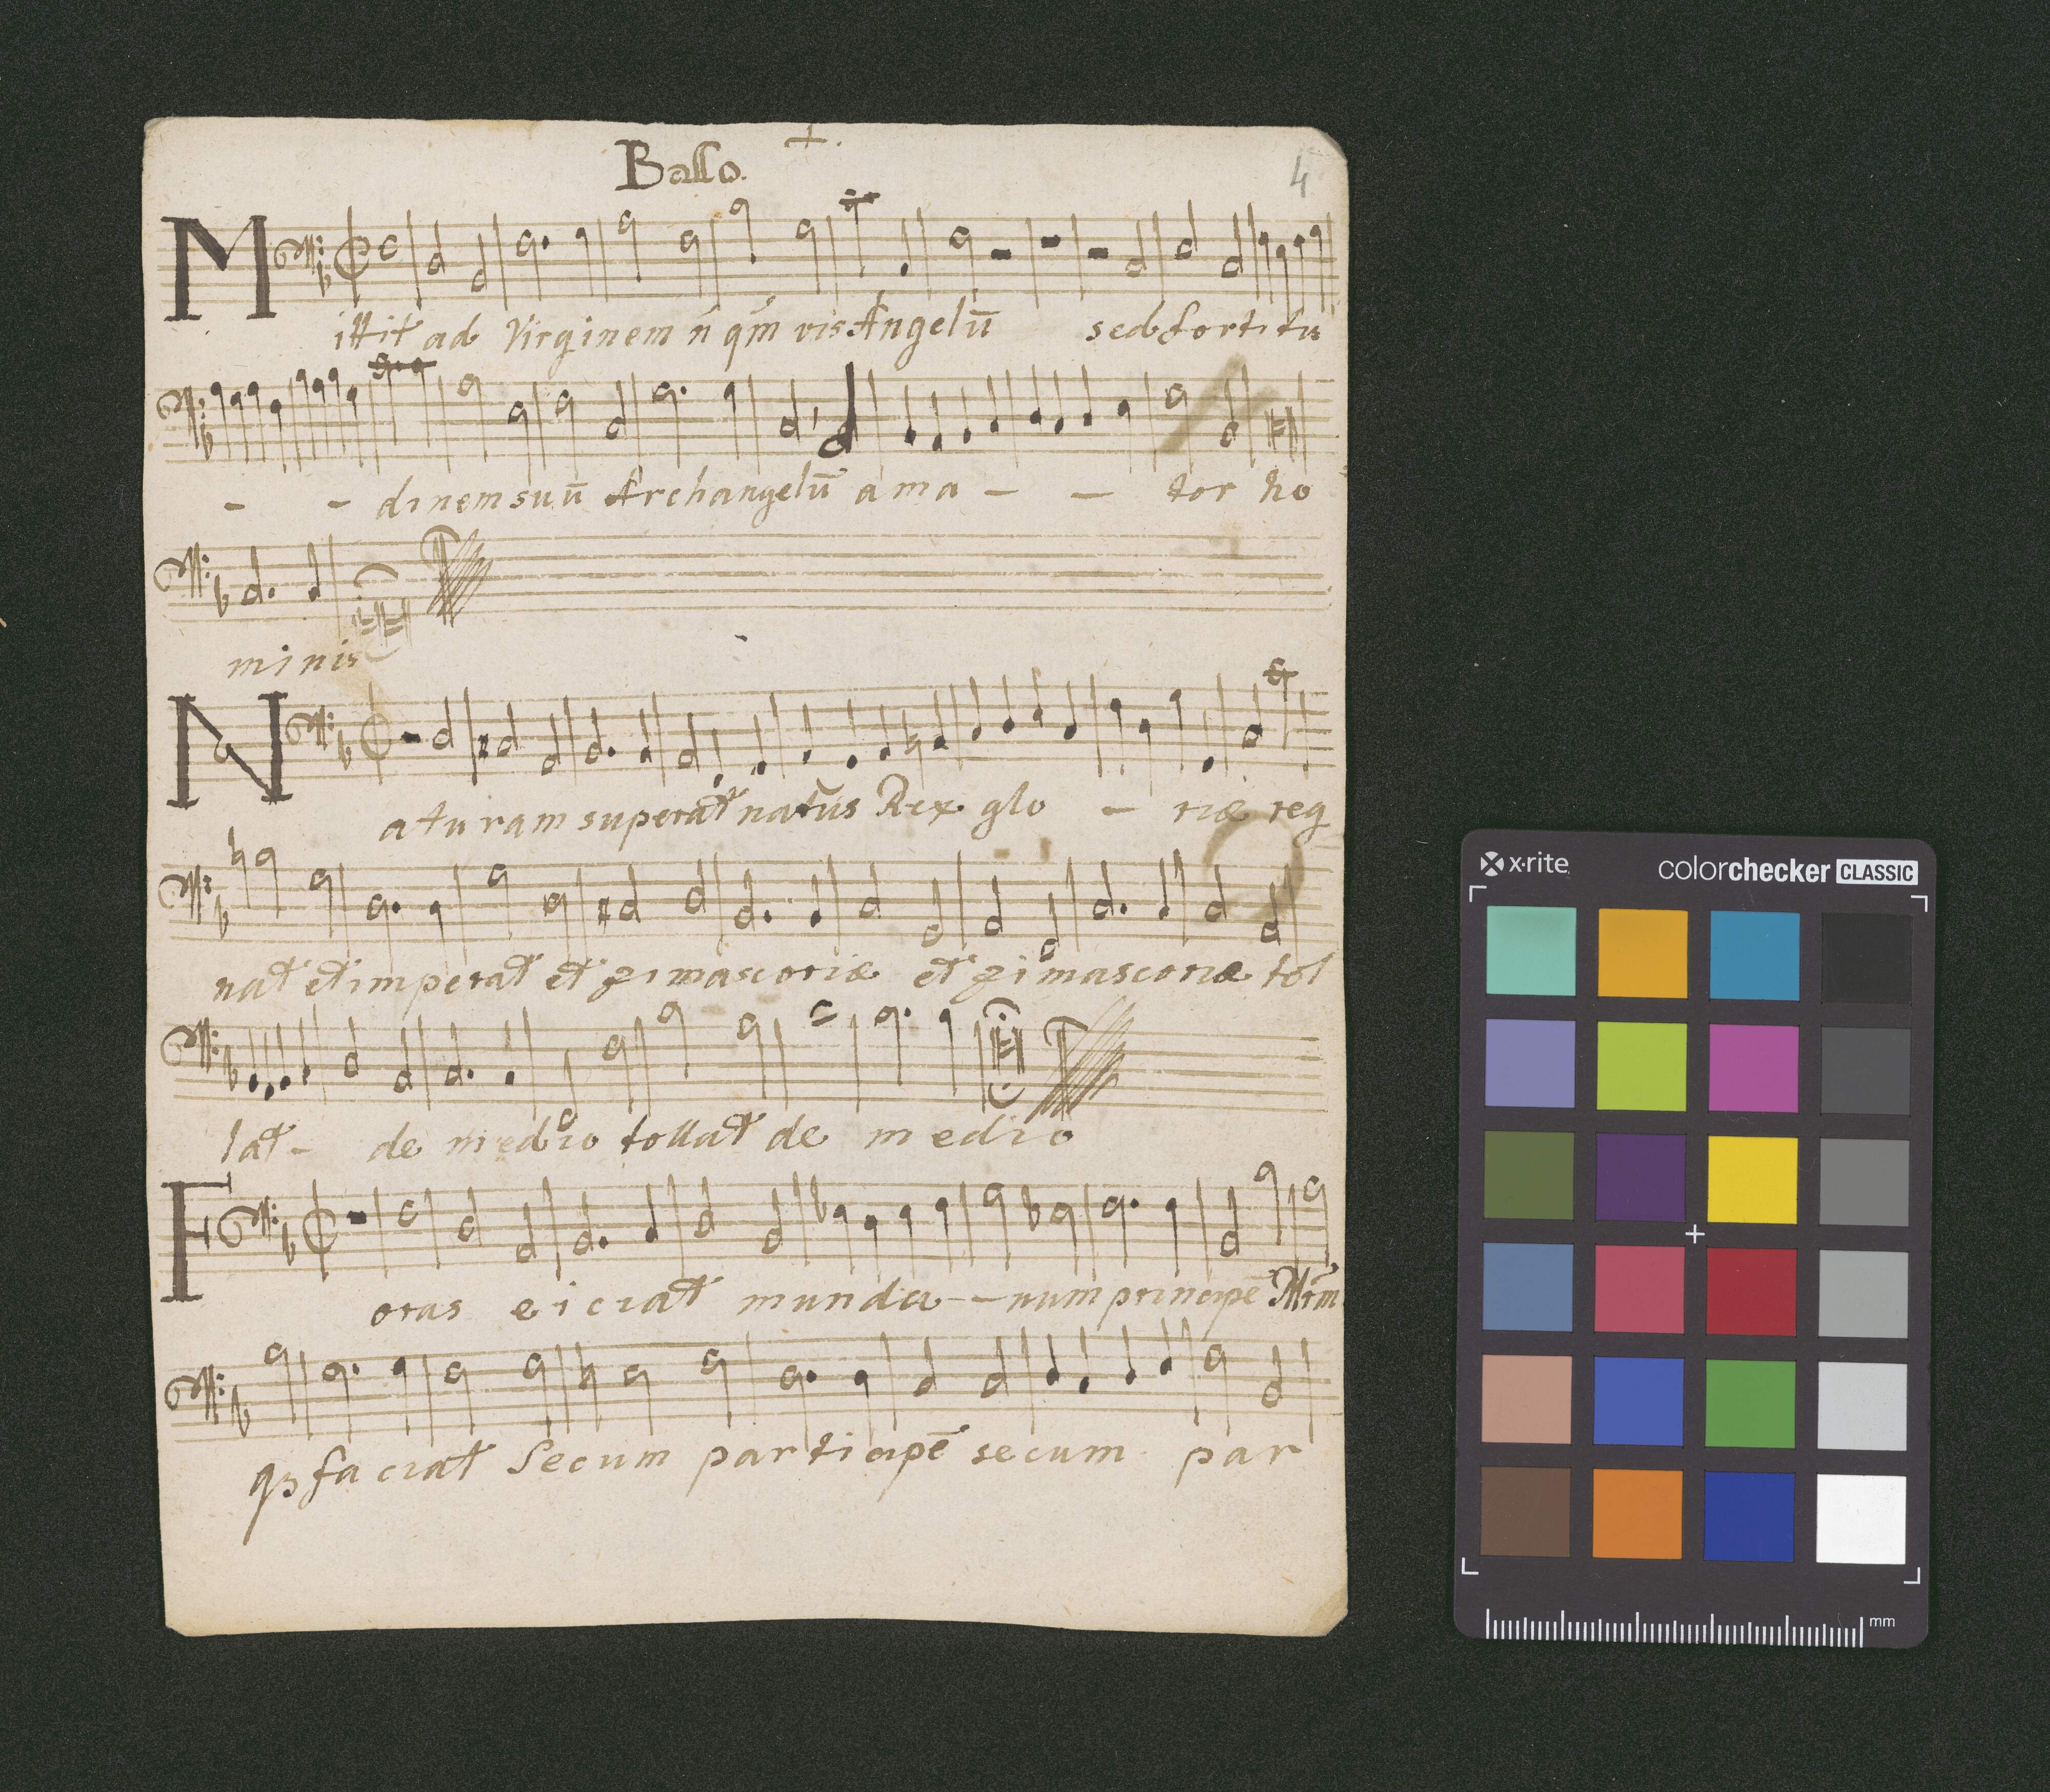 Basso.
4
Mittit ad Virginem ñ qm̃ vis Angelũ sed fortitu
- - dinem suũ Archangelũ ama - - tor ho
minis
Naturam superat natus Rex glo - riæ reg
nat et imperat et zimascoriæ et zimascoriæ tol
lat - de medio tollat de medio
Foras eiciat munda - - num principẽ Mrm̃
qȝ faciat Secum participẽ secum par
x·rite
colorchecker CLASSIC
mm